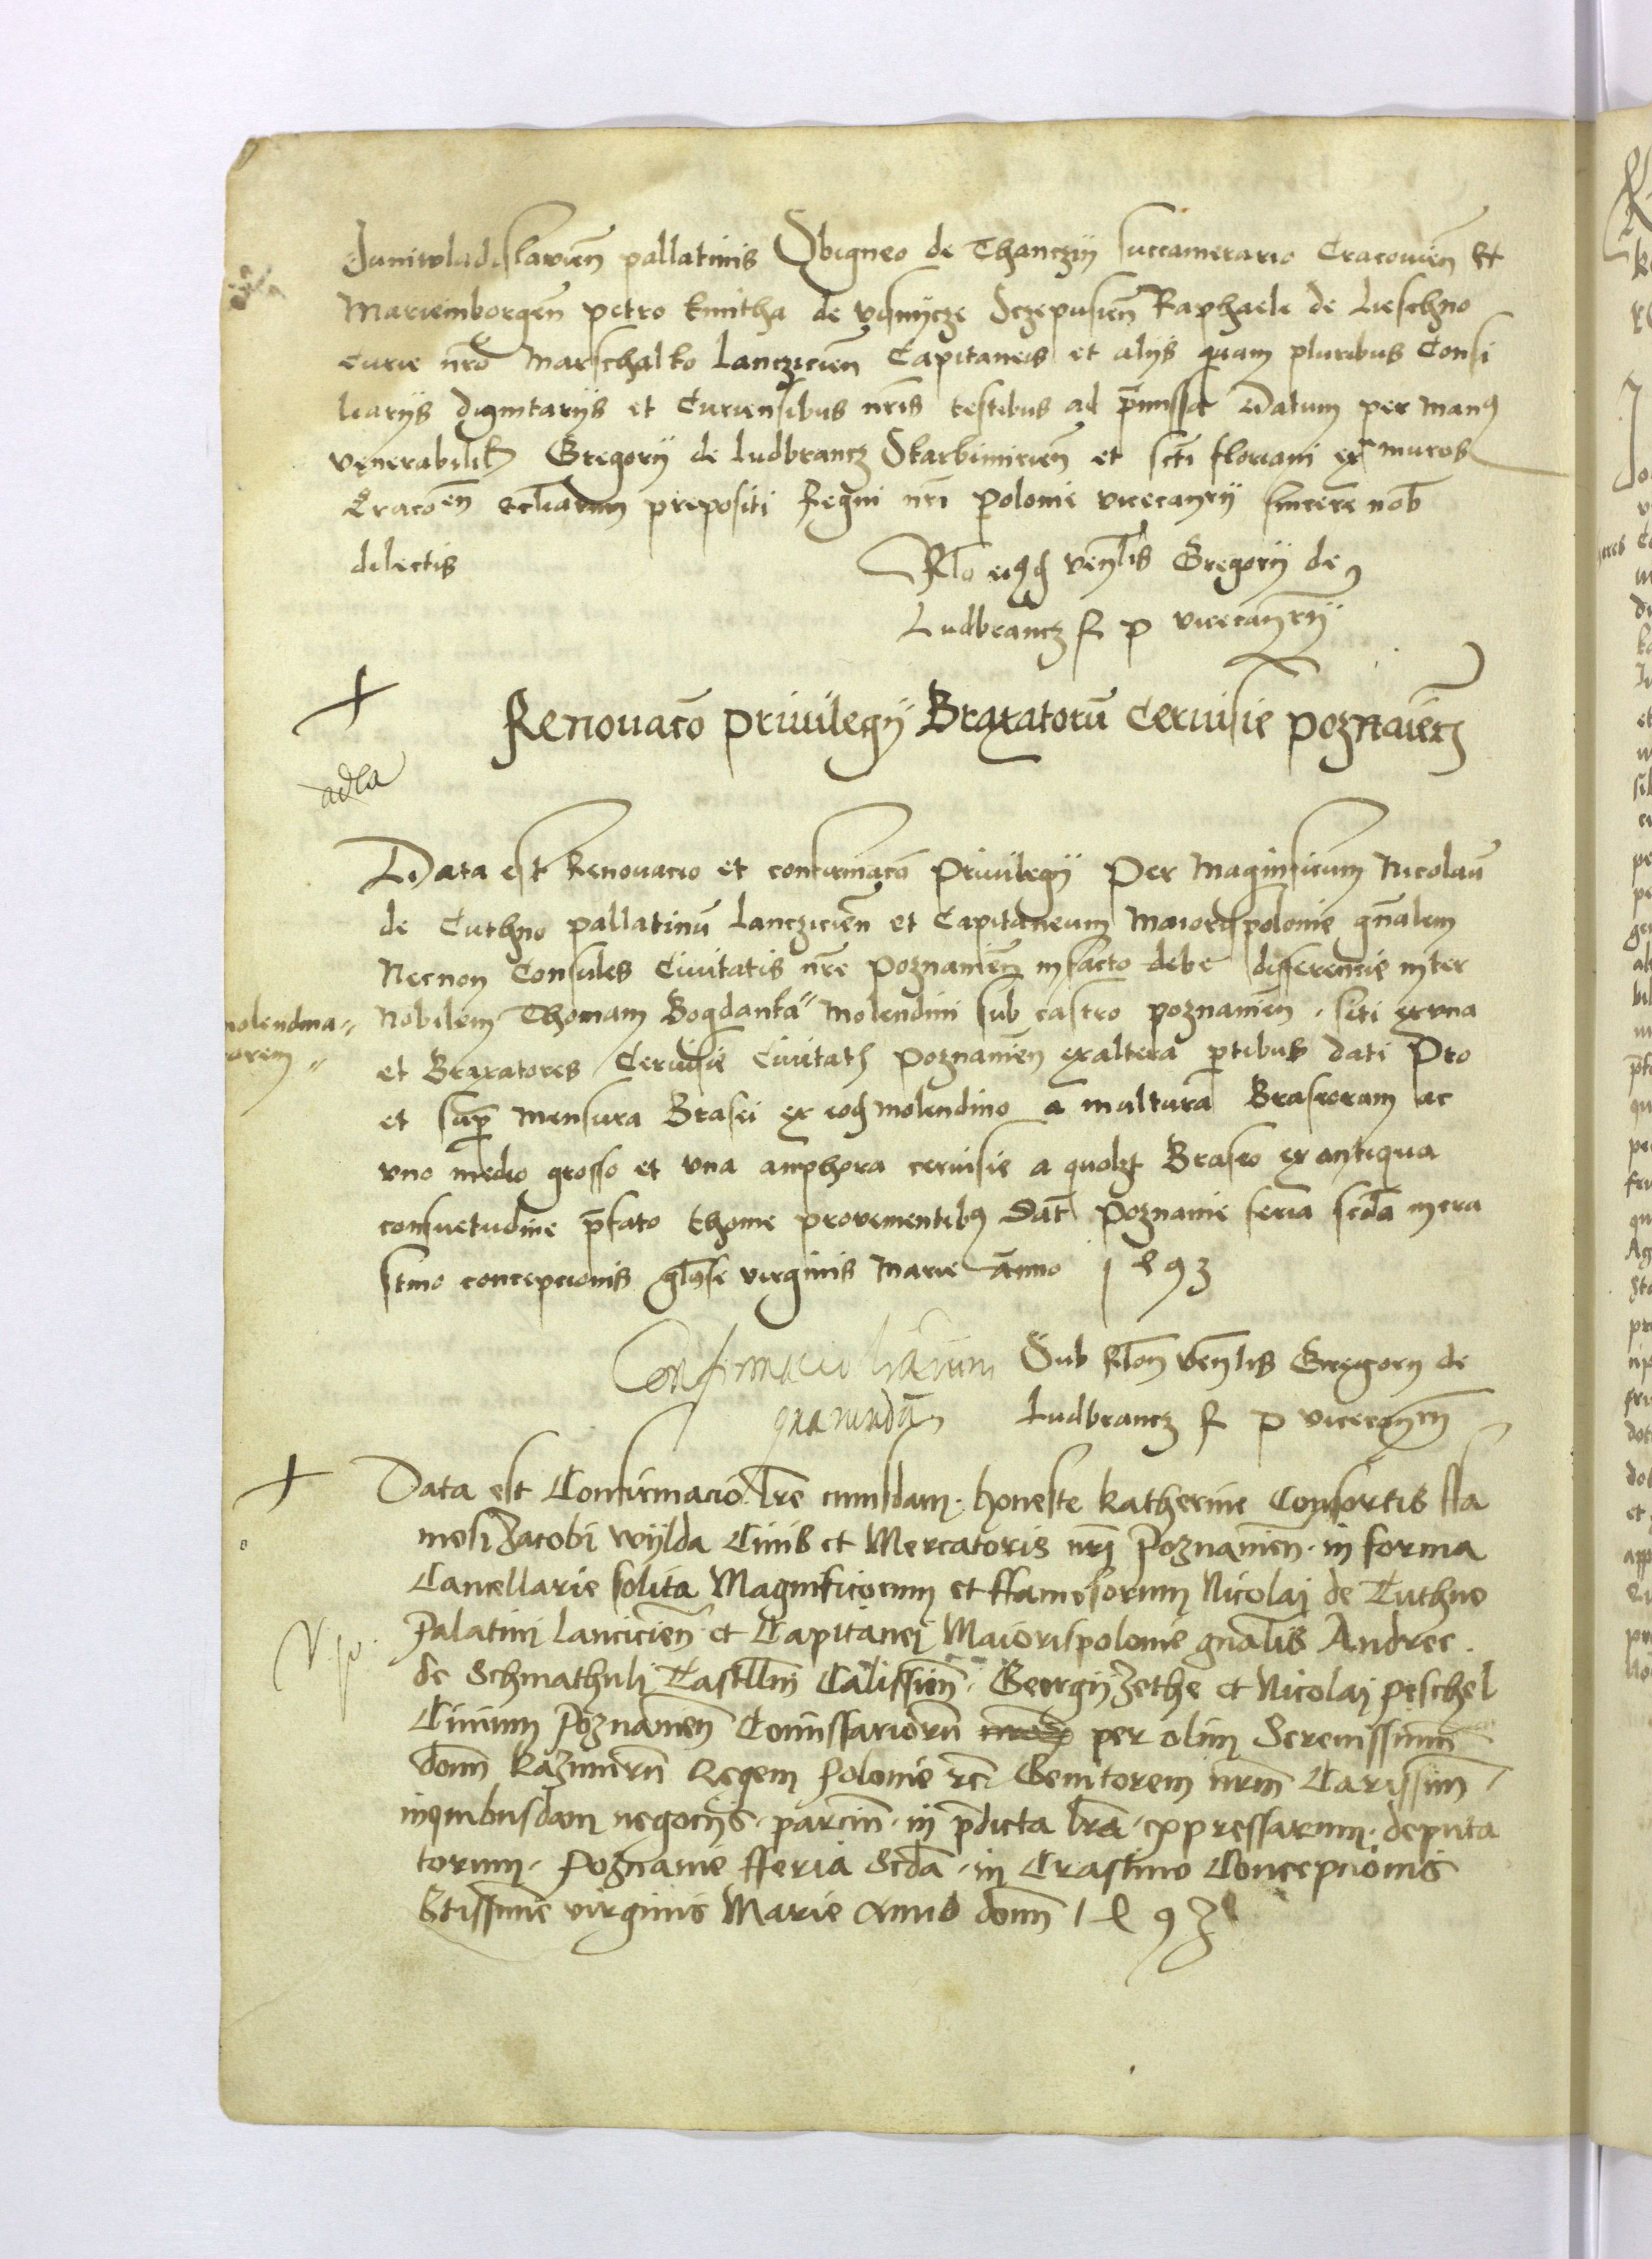 Juniwladislavien̄ pallatinis Sbigneo de Thanczin succamerario Cracovien̄ et
Mariemborgen̄ petro kmitha de vismycze Sczepusien̄ Raphaele de Lieschno
Curie nr̄o Marschalko Lanczicien̄ Capitaneis et alijs quam pluribus Consi
liarijs dignitarijs et Curiensibus nr̄is testibus ad p̄missa Datum per manꝰ
venerabilis Gregorij de ludbrancz Skarbimirien̄ et scti floriani ex muros
Cracoen̄ ecl̄iarum prepositi Regni nr̄i polonie vicecanrij sincere nob̄
dilectis
Rl̄o eiꝰdē ven̄lis Gregorij de
Ludbrancz R p vicecanr̄ij
Renovacō privilegij Braxatorū Cervisie poznanien̄
adla
Data est Renovacio et confirmacō privilegij per Magnificum Nicolaū
de Cuthno pallatinū lanczicien̄ et Capitaneum Maiorispolonie gn̄alem
Necnon Consules Civitatis nr̄e poznanien̄ in facto debe differencie inter
Nobilem Thomam Bogdanka molendini sub castro poznanien̄ siti ex vna
molendina
torem
et Braxatores Cervisie Civitatis poznanien̄ ex altera p̄tibus dati pro
et sup̄ mensura Brasei ex eodē molendino a multura Braseorum ac
vno medio grosso et vna amphora cervisie a quolibet Braseo ex antiqua
consuetudine p̄fato thome provenientibꝰ Dat̄ poznanie feria scd̄a in cra
stino concepcionis gl̄ose virginis Marie Anno 1493
Confirmacio lr̄arum
quarundā
Sub Rl̄on ven̄lis Gregorij de
Ludbrancz R p vicecanr̄ij
Data est Confirmacio lr̄e cuiusdam honeste katherine Consortis ffa
mosi Jacobi wylda Civis et Mercatoris nr̄i Poznanien̄ in forma
Cancellarie solita Magnificorum et ffamosorum Nicolai de Cuthno
Palatini lancicien̄ et Capitanei Maiorispolonie gn̄alis Andree
de Schmathuli Castll̄ni Calissien̄ Georgij Zethe et Nicolai peschel
Civium Poznanien̄ Comissariorū nr̄orum per olim Serenissimū
don̄m kazimirū Regem Polonie etc̄ Genitorem nr̄m Carissim̄
in quibusdam negocijs parciū in p̄dicta lr̄a expressarum deputa
torum Poznanie fferia Scd̄a in Crastino Concepcionis
Sctissime virginis Marie Anno don̄i 1493